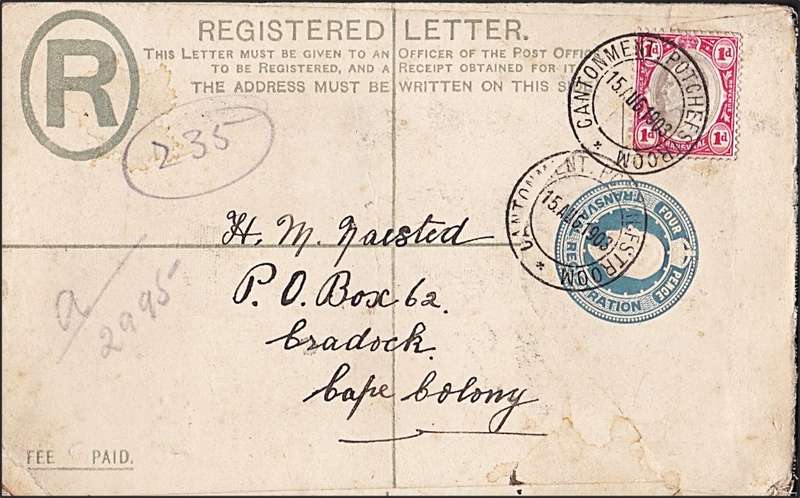 REGISTERED LETTER.
THIS LETTER MUST BE GIVEN TO AN OFFICER OF THE POST OFFIC
TO BE REGISTERED, AND A RECEIPT OBTAINED FOR IT
THE ADDRESS MUST BE WRITTEN ON THIS S
R
235
1d 1d
REVENUE
TRANSVAAL
1d 1d
CANTONMENT POTCHEFSTROOM
15.AUG.1903
*
CANTONMENT PO HEFSTROOM
15.AUG.1903
*
FOUR PENCE
TRANSVAAL REG RATION
H. M. Naested
P. O. Box 62.
Cradock.
Cape Colony
a/2995
FEE PAID.